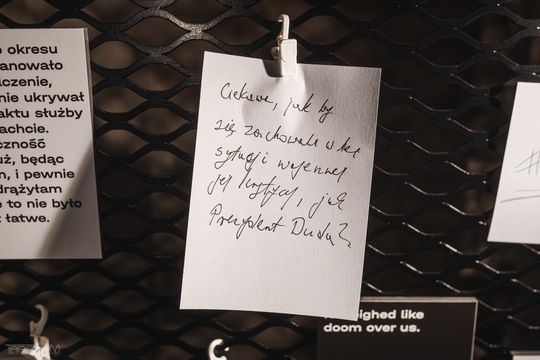 o okresu
anowało
czenie,
nie ukrywał
aktu służby
achcie.
czność
uż, będąc
n, i pewnie
drążyłam
e to nie było
t łatwe.
Ciekawe, jak by
się zachowała w tej
sytuacji wojennej
jej krytycy, jak
Prezydent Duda?
ighed like
doom over us.